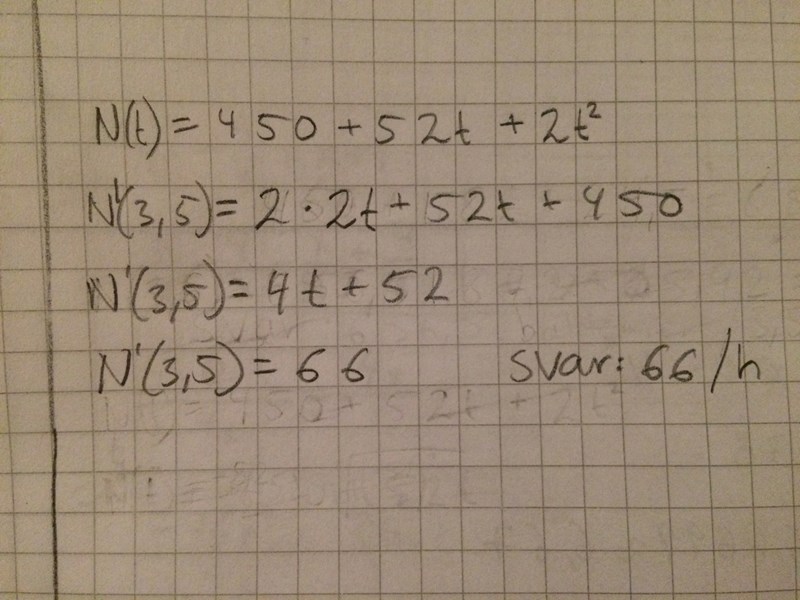 N(t) = 450 + 52t + 2t²
N'(3,5) = 2 · 2t + 52t + 450
N'(3,5) = 4t + 52
N'(3,5) = 66 svar: 66/h